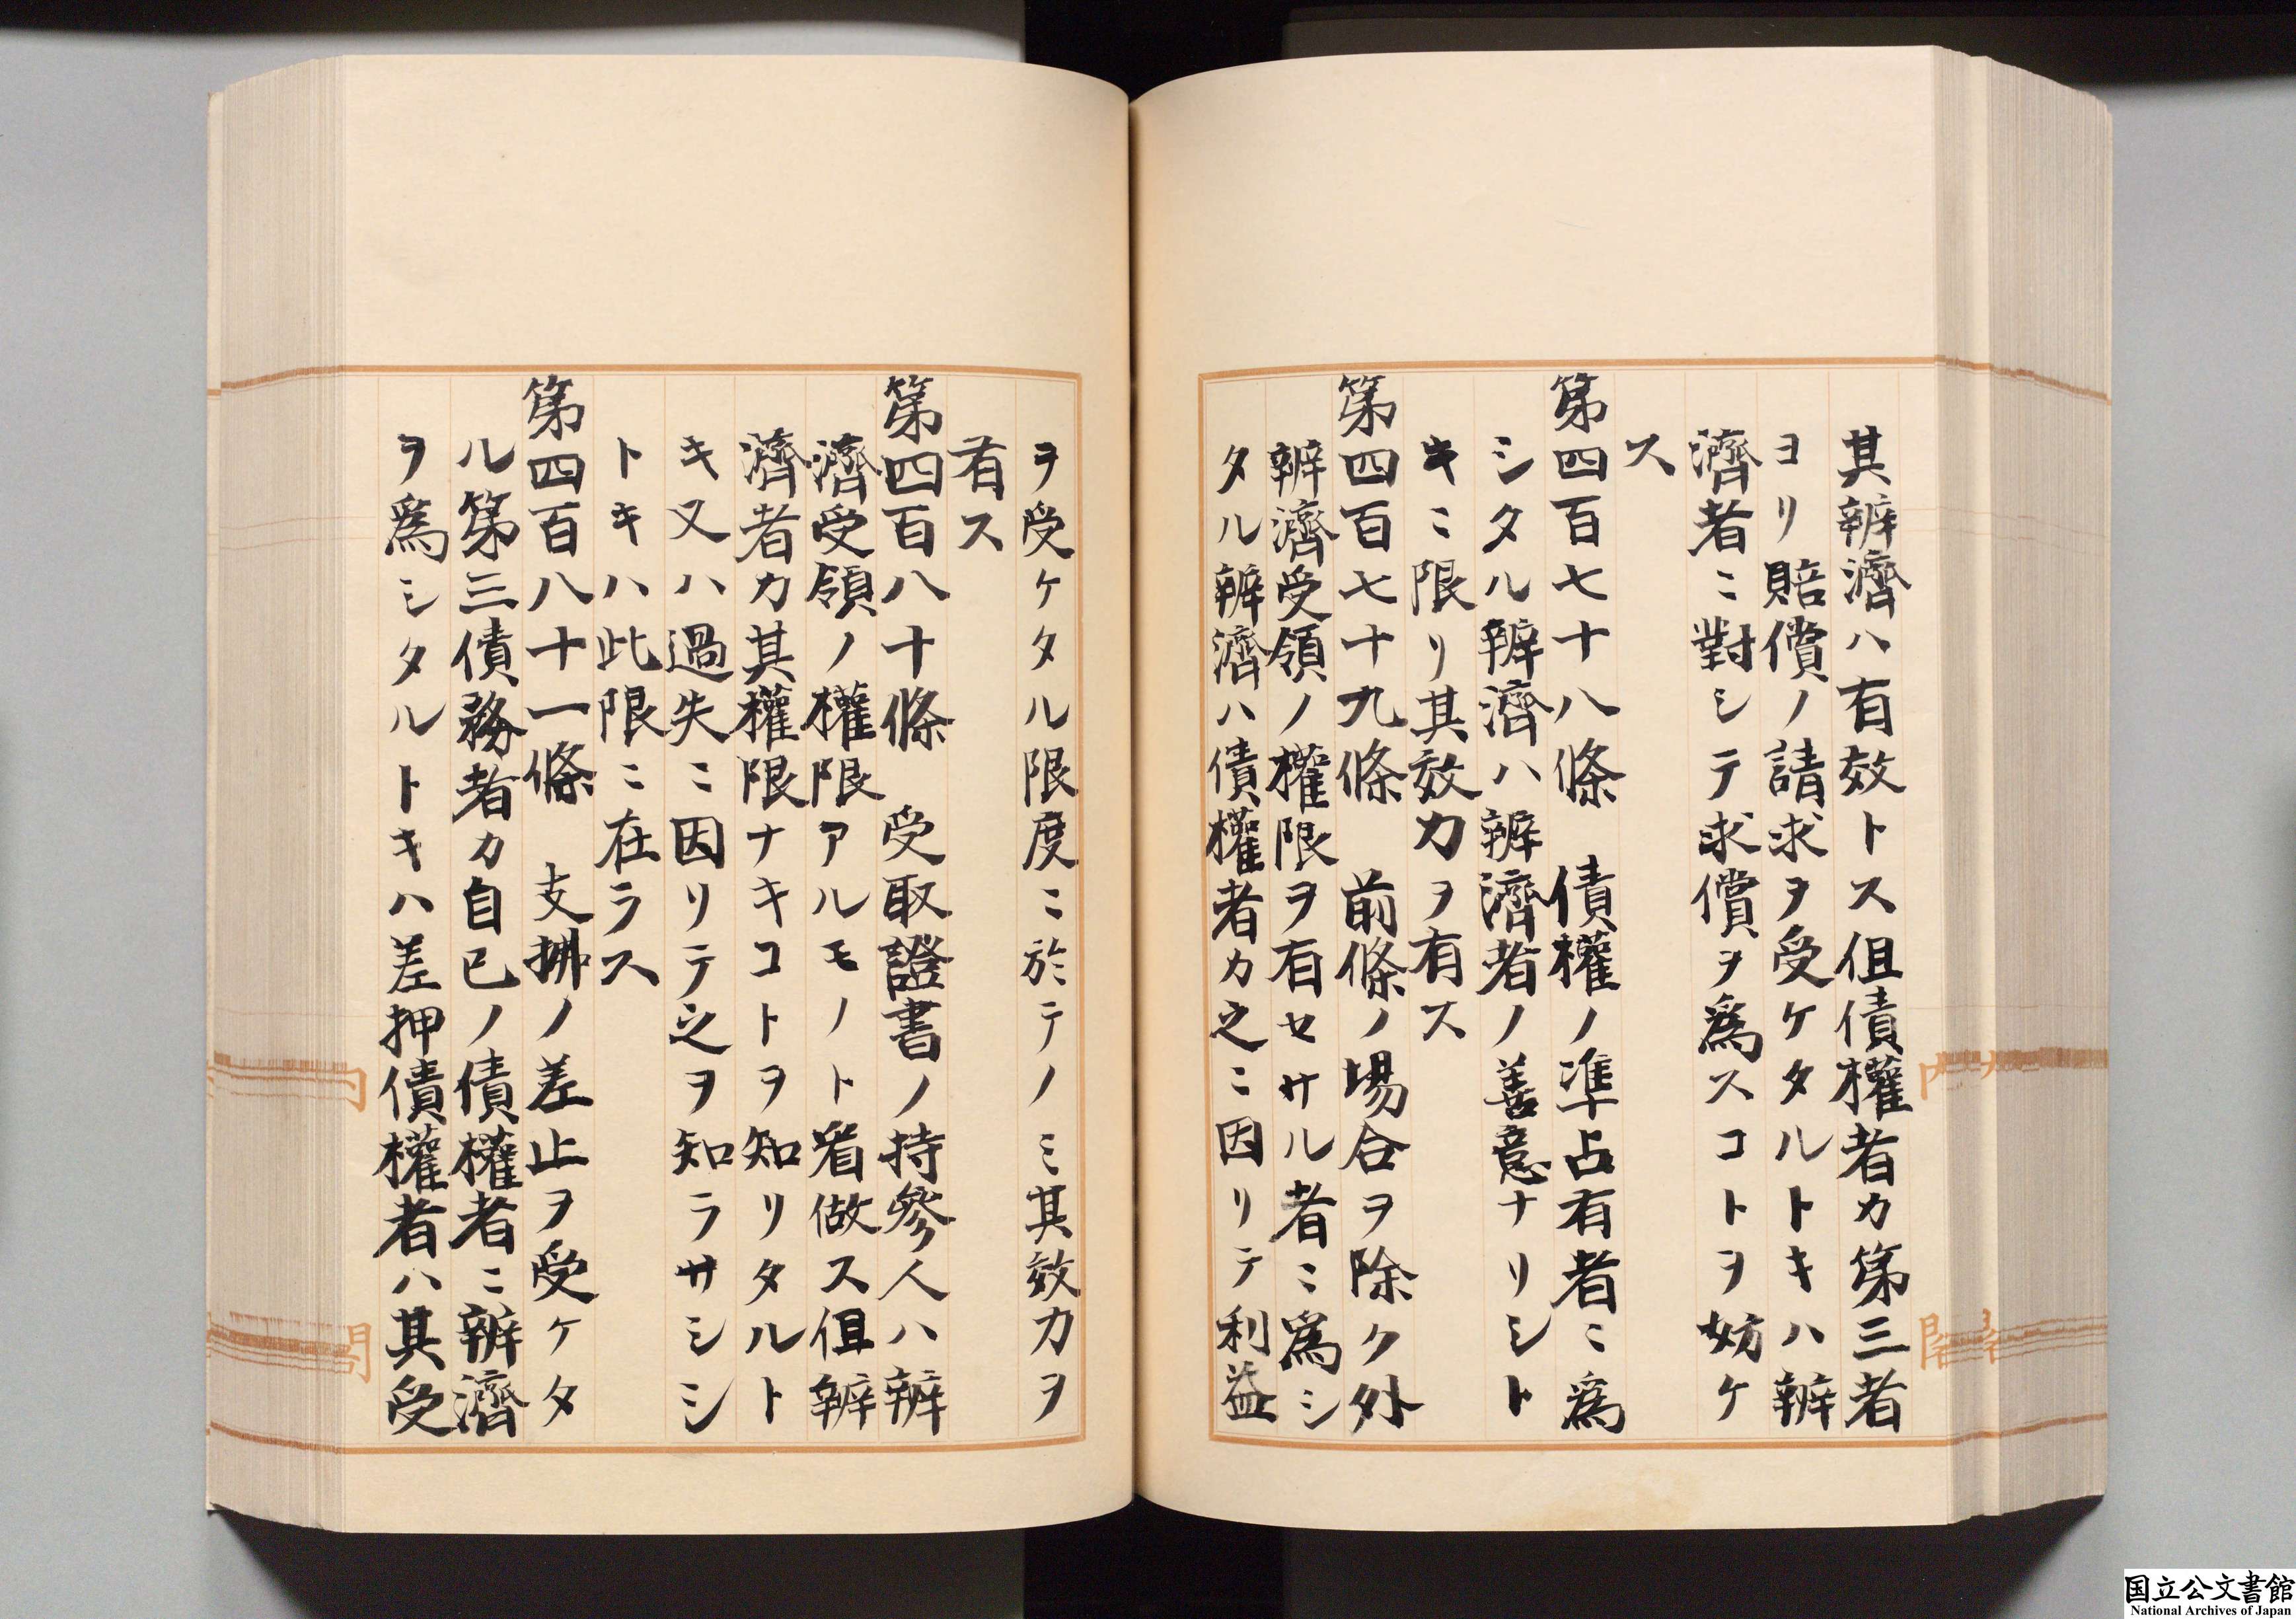 其辨濟ハ有效トス但債權者カ第三者
ヨリ賠償ノ請求ヲ受ケタルトキハ辨
濟者ニ對シテ求償ヲ爲スコトヲ妨ケ
ス
第四百七十八條　債權ノ準占有者ニ爲
シタル辨濟ハ辨濟者ノ善意ナリシト
キニ限リ其效力ヲ有ス
第四百七十九條　前條ノ場合ヲ除ク外
辨濟受領ノ權限ヲ有セサル者ニ爲シ
タル辨濟ハ債權者カ之ニ因リテ利益
ヲ受ケタル限度ニ於テノミ其效力ヲ
有ス
第四百八十條　受取證書ノ持參人ハ辨
濟受領ノ權限アルモノト看做ス但辨
濟者カ其權限ナキコトヲ知リタルト
キ又ハ過失ニ因リテ之ヲ知ラサシシ
トキハ此限ニ在ラス
第四百八十一條　支拂ノ差止ヲ受ケタ
ル第三債務者カ自己ノ債權者ニ辨濟
ヲ爲シタルトキハ差押債權者ハ其受
内
閣
国立公文書館
National Archives of Japan